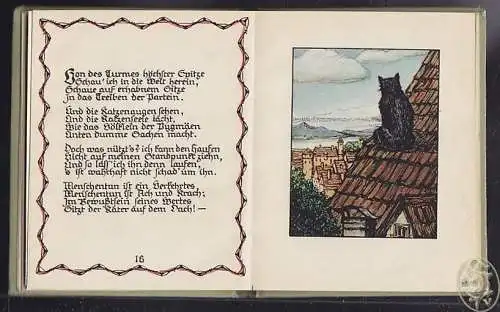 Von des Turmes höchster Spitze
Schau' ich in die Welt herein,
Schaue auf erhabnem Sitze
In das Treiben der Partein.
Und die Katzenaugen sehen,
Und die Katzenseele lacht,
Wie das Völklein der Pygmäen
Unten dumme Sachen macht.
Doch was nützt's? ich kann den Haufen
Nicht auf meinen Standpunkt ziehn,
Und so lass' ich ihn denn laufen,
's ist wahrhaft nicht schad' um ihn.
Menschentun ist ein Verkehrtes
Menschentun ist Ach und Krach;
Im Bewußtsein seines Wertes
Sitzt der Kater auf dem Dach! —
16